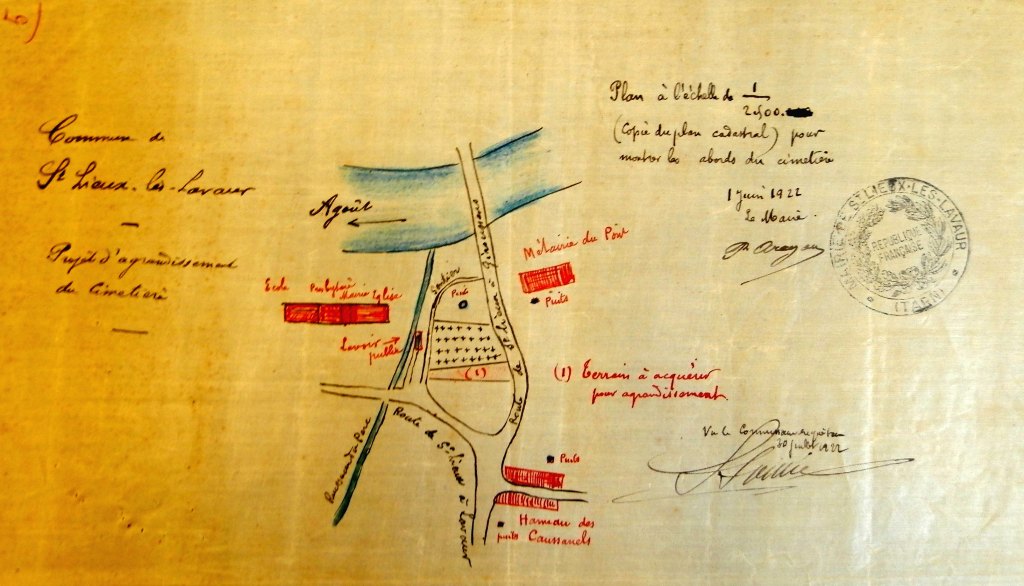 5)
Commune de
St Lieux-les-Lavaur
Projet d'agrandissement
du Cimetière
Plan à l'échelle de 1/2500.
(Copie du plan cadastral) pour
montrer les abords du cimetière
1 Juin 1922
Le Maire.
MAIRIE DE ST LIEUX-LES-LAVAUR
RÉPUBLIQUE
FRANÇAISE
(TARN)
Agoût
Route de St Lieux à Giroussens
Métairie du Port
Puits
Sentier
Puits
Ecole
Presbytère
Mairie Eglise
Lavoir
public
(1)
(1) Terrain à acquérir
pour agrandissement
Ruisseau du Parc
Route de St Lieux à Lavaur
Vu le Commissaire enquêteur
30 juillet 1922
Puits
Hameau des
puits Caussanels